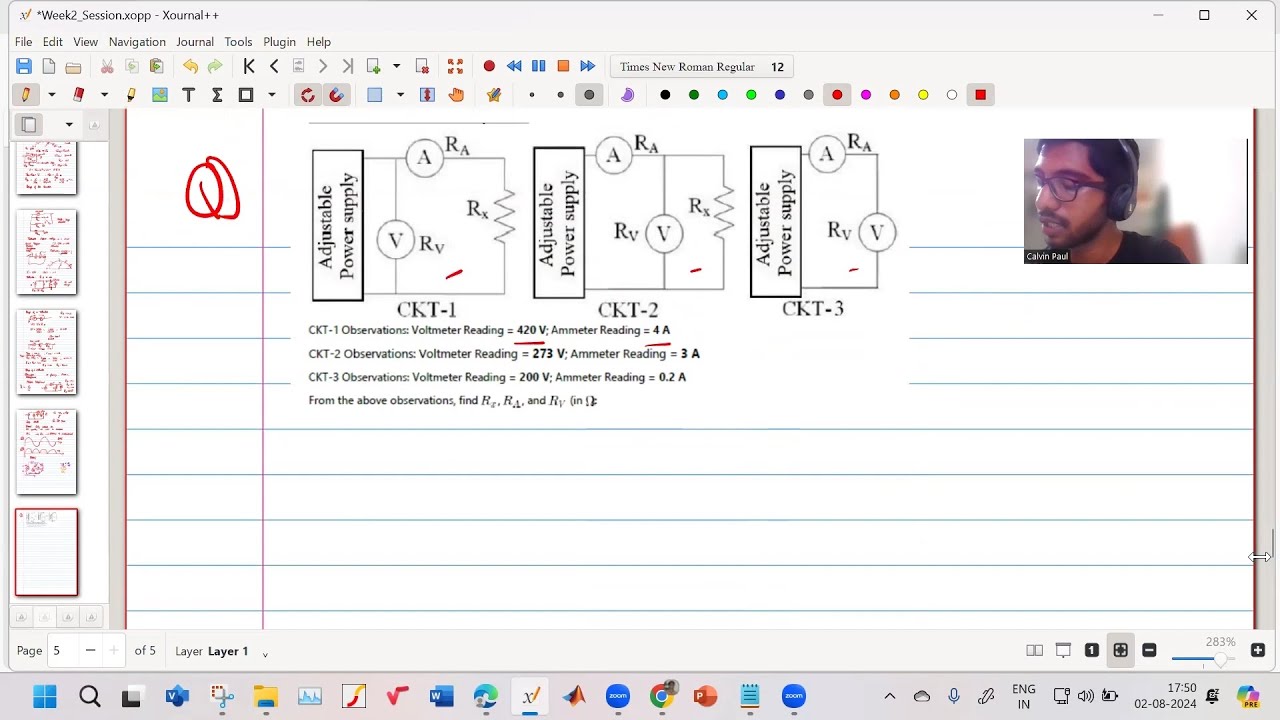 *Week2_Session.xopp - Xournal++
File Edit View Navigation Journal Tools Plugin Help
Times New Roman Regular 12
Q
Adjustable Power supply
A
R_A
V
R_V
R_x
CKT-1
Adjustable Power supply
A
R_A
R_V
V
R_x
CKT-2
Adjustable Power supply
A
R_A
R_V
V
CKT-3
Calvin Paul
CKT-1 Observations: Voltmeter Reading = 420 V; Ammeter Reading = 4 A
CKT-2 Observations: Voltmeter Reading = 273 V; Ammeter Reading = 3 A
CKT-3 Observations: Voltmeter Reading = 200 V; Ammeter Reading = 0.2 A
From the above observations, find R_x, R_A, and R_V (in Ω):
Page 5 of 5 Layer Layer 1
283%
zoom
zoom
ENG
IN
17:50
02-08-2024
PRE